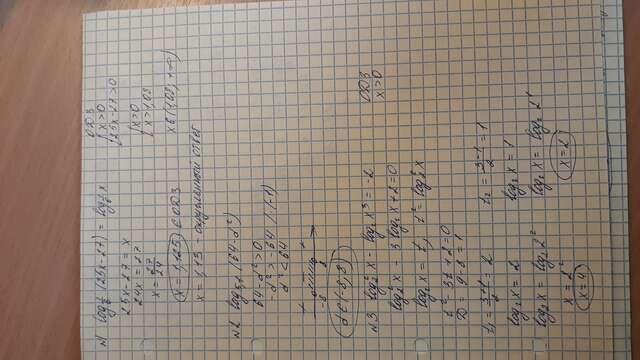 N1 log₈(25x-27) = log₈ x
25x-27 = x
24x = 27
x = 27/24
x = 1,125 ∈ ОДЗ
x = 1,125 - окончательный ответ
ОДЗ
{x>0
{25x-27>0
{x>0
{x>1,08
x∈(1,08; +∞)
N2
64-d²>0
-d²>-64 /(-1)
d²<64
+ - +
-8 8
d∈(-8;8)
N3 log₂²x - log₂x³ = -2
log₂²x - 3log₂x+2=0
log₂x = t, t² = log₂²x
t²-3t+2=0
D = 9-8 = 1
t₁ = (3+1)/2 = 2
log₂x = 2
log₂x = log₂2²
x = 2²
x=4
t₂ = (3-1)/2 = 1
log₂x = 1
log₂x = log₂2¹
x=2
ОДЗ
x>0